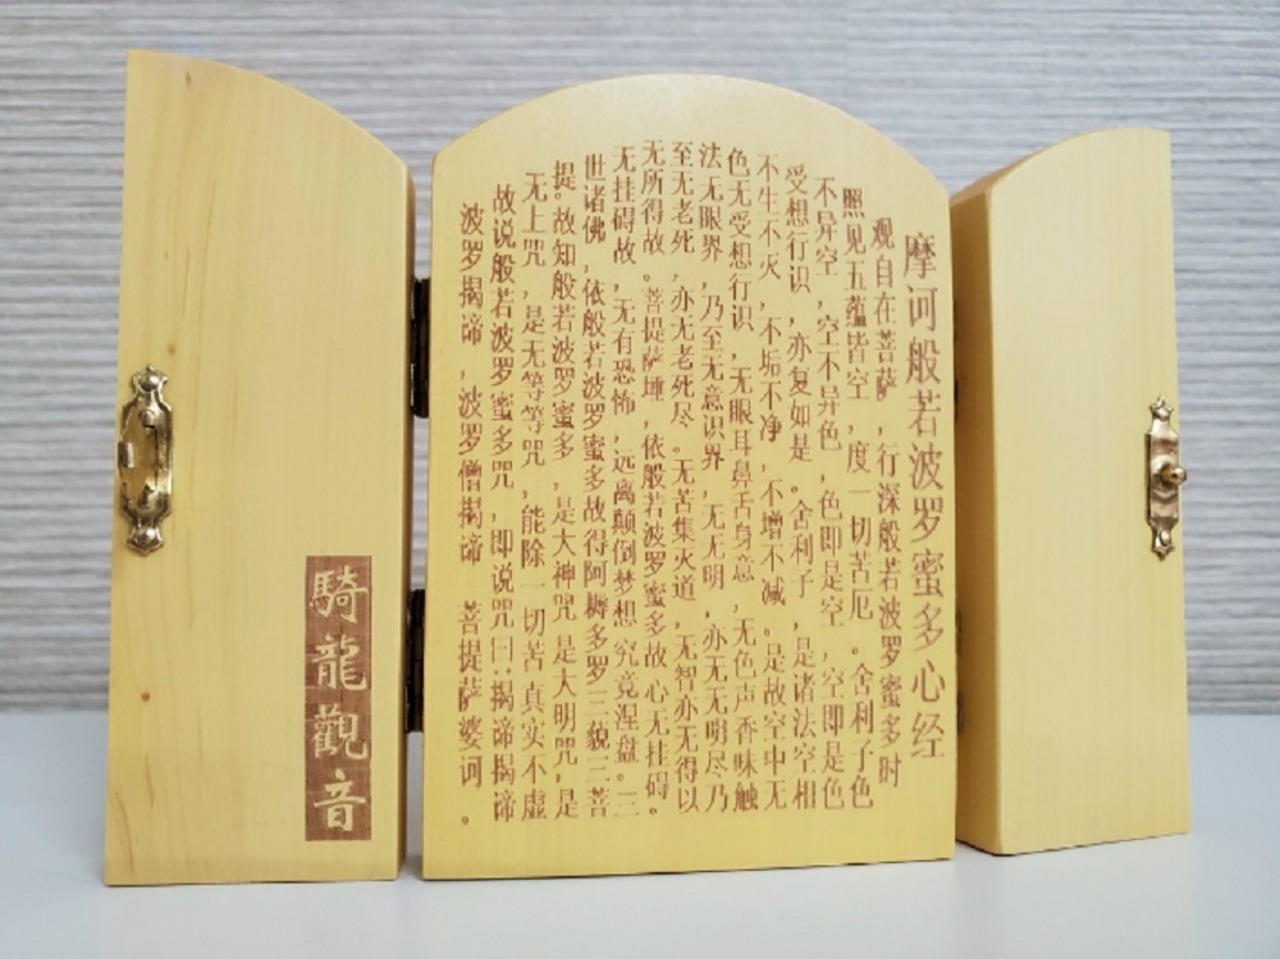 摩诃般若波罗蜜多心经
观自在菩萨,行深般若波罗蜜多时
照见五蕴皆空,度一切苦厄。舍利子色
不异空,空不异色,色即是空,空即是色
受想行识,亦复如是。舍利子,是诸法空相
不生不灭,不垢不净,不增不减。是故空中无
色无受想行识,无眼耳鼻舌身意,无色声香味触
法无眼界,乃至无意识界,无无明,亦无无明尽乃
至无老死,亦无老死尽。无苦集灭道,无智亦无得以
无所得故。菩提萨埵,依般若波罗蜜多故心无挂碍。
无挂碍故,无有恐怖,远离颠倒梦想究竟涅盘。三
世诸佛,依般若波罗蜜多故得阿耨多罗三藐三菩
提。故知般若波罗蜜多,是大神咒是大明咒,是
无上咒,是无等等咒,能除一切苦真实不虚
故说般若波罗蜜多咒,即说咒曰:揭谛揭谛
波罗揭谛,波罗僧揭谛 菩提萨婆诃。
騎龍觀音